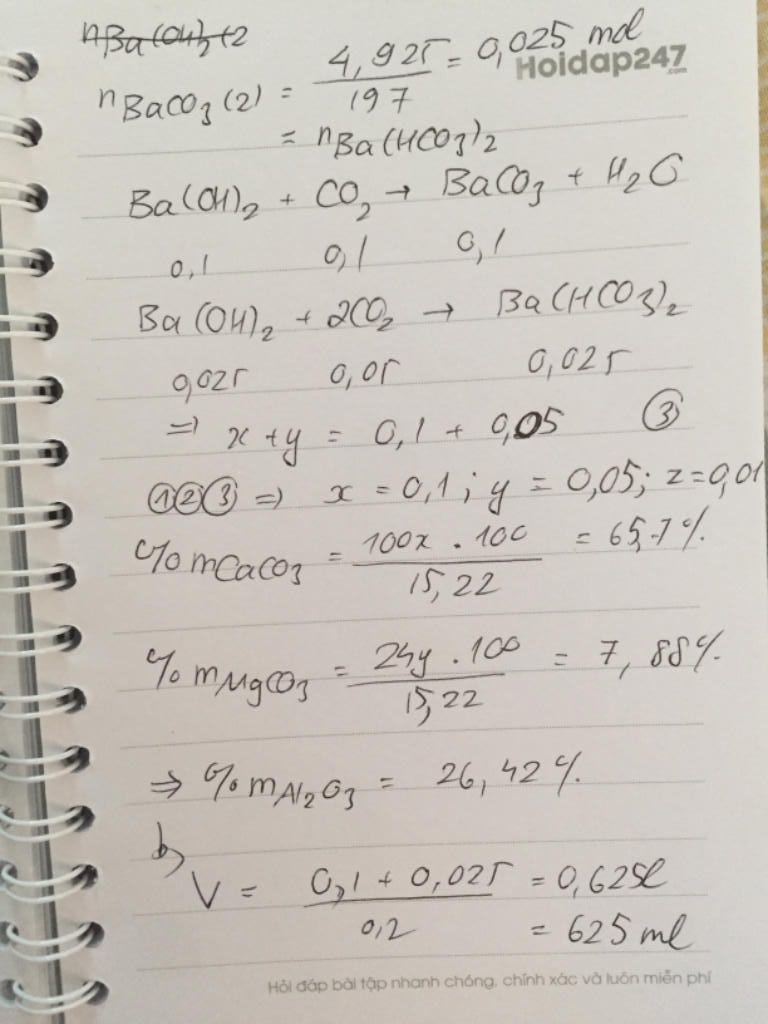 nBa(OH)2 (2
nBaCO3 (2) = 4,925 / 197 = 0,025 mol
Hoidap247
.com
= nBa(HCO3)2
Ba(OH)2 + CO2 → BaCO3 + H2O
0,1 0,1 0,1
Ba(OH)2 + 2CO2 → Ba(HCO3)2
0,025 0,05 0,025
=) x + y = 0,1 + 0,05 ③
①②③ =) x = 0,1 ; y = 0,05; z = 0,01
% mCaCO3 = 100x . 100 / 15,22 = 65,7%.
% mMgCO3 = 24y . 100 / 15,22 = 7,88%.
⇒ % mAl2O3 = 26,42%.
b)
V = 0,1 + 0,025 / 0,2 = 0,625l
= 625 ml
Hỏi đáp bài tập nhanh chóng, chính xác và luôn miễn phí